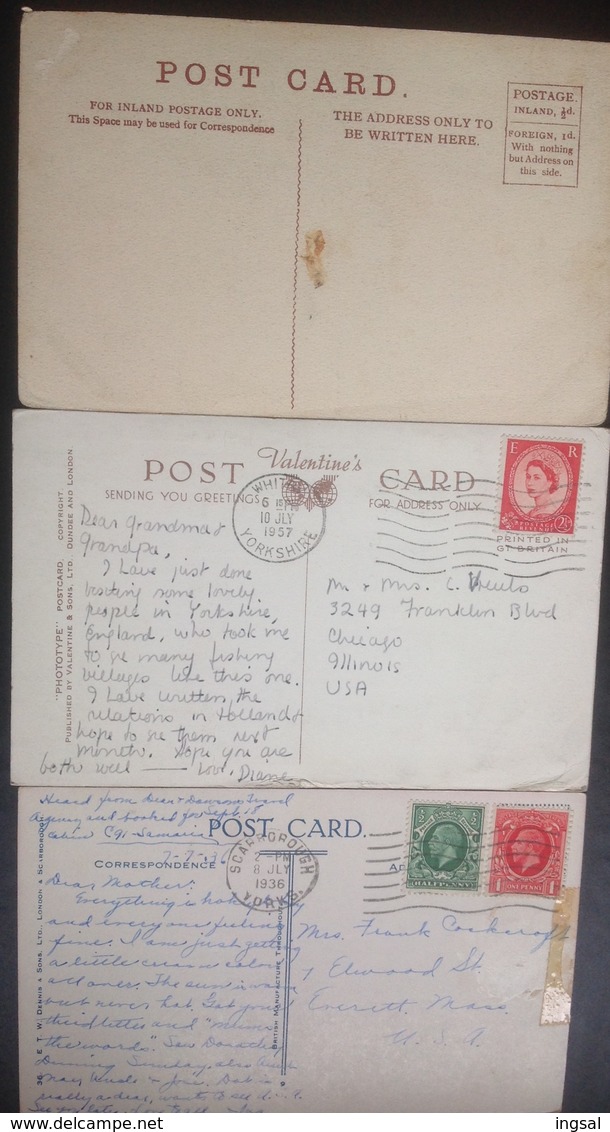 POST CARD.
FOR INLAND POSTAGE ONLY.
This Space may be used for Correspondence
THE ADDRESS ONLY TO
BE WRITTEN HERE.
POSTAGE.
INLAND, ½d.
FOREIGN, 1d.
With nothing
but Address on
this side.
"PHOTOTYPE" POSTCARD. COPYRIGHT.
PUBLISHED BY VALENTINE & SONS, LTD. DUNDEE AND LONDON
POST Valentine's CARD
SENDING YOU GREETINGS
FOR ADDRESS ONLY
WHITBY
6 15 PM
10 JLY
1957
YORKSHIRE
E R
POSTAGE REVENUE
2½D
PRINTED IN
GT BRITAIN
Dear Grandma &
Grandpa,
I have just done
visiting some lovely
people in Yorkshire,
England, who took me
to see many fishing
villages like this one.
I have written the
relations in Holland &
hope to see them next
month. Hope you are
both well — Love, Diane
Mr & Mrs. C.
3249 Franklin Blvd
Chicago
Illinois
USA
36 E. T. W. DENNIS & SONS, LTD., LONDON & SCARBOROUGH
Heard from Dean & Dawson Travel
Agency and booked for Sept. 18
cabin C91 - Samaria
POST CARD.
CORRESPONDENCE
AD
BRITISH MANUFACTURE THROUGHOUT
7-7-'36
SCARBOROUGH
2 - PM
8 JLY
1936
YORKS.
HALFPENNY
1 ONE PENNY 1
Dear Mother:
Everything is
and everyone feeling
fine. I am just getting
a little color
all over. The sun is warm
but never hot. Got your
letters and
the words". Saw Dorothy
Sunday, also Aunt
May, &
really a dear, wants to
Mrs. Frank Cockcroft
7 Elwood St.
Everett, Mass.
U.S.A.
ingsal